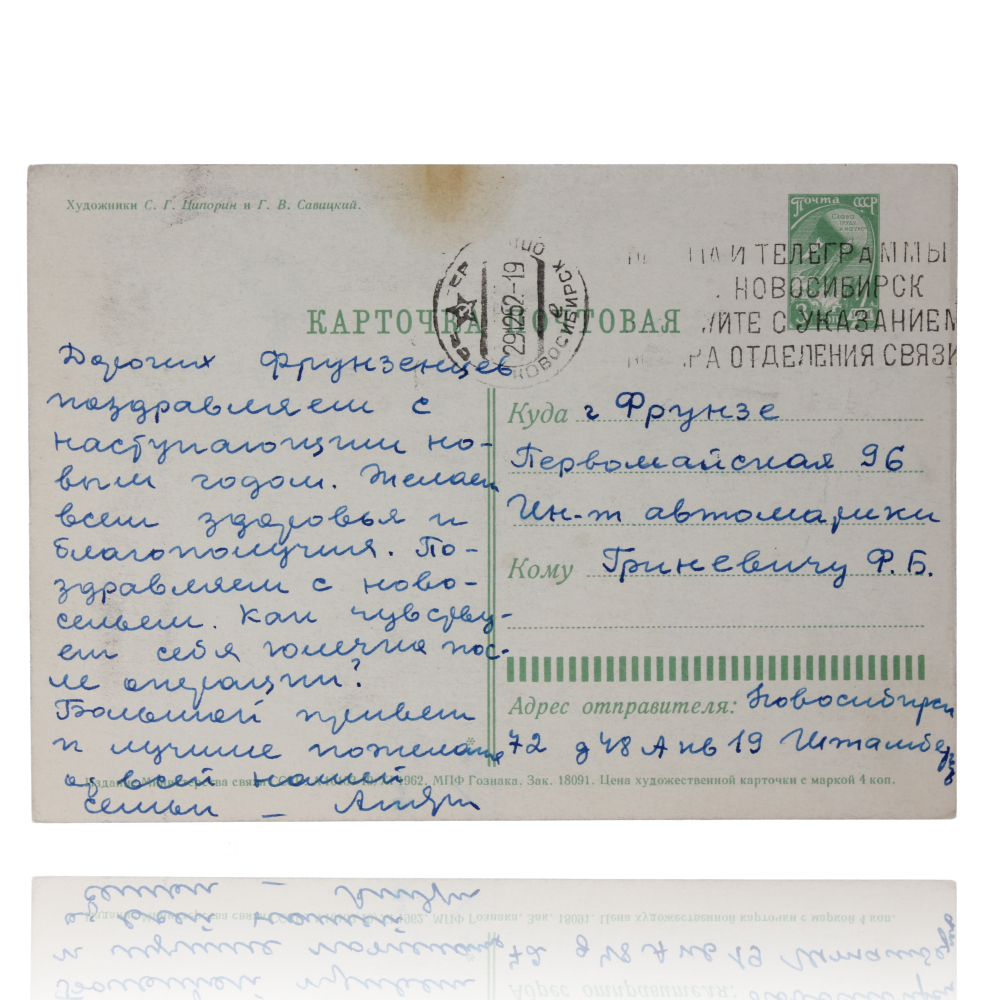 Художники С. Г. Ципорин и Г. В. Савицкий.
Почта СССР
И ТЕЛЕГРАММЫ
НОВОСИБИРСК
УЙТЕ С УКАЗАНИЕМ
РА ОТДЕЛЕНИЯ СВЯЗИ
291262-19
НОВОСИБИРСК
КАРТОЧКА ПОЧТОВАЯ
Дорогих фрунзенцев
поздравляем с
наступающим но-
вым годом. Желаем
всем здоровья и
благополучия. По-
здравляем с ново-
сельем. Как чувству-
ет себя после операции?
Большой привет
и лучшие пожелания
от всей нашей
семьи –
Куда г Фрунзе
Первомайская 96
Ин-т автоматики
Кому Гриневичу Ф. Б.
Адрес отправителя: Новосибирск
72 д 48 А кв 19 Штамбергер
Издание Министерства связи СССР. 1962. МПФ Гознака, Зак. 18091. Цена художественной карточки с маркой 4 коп.